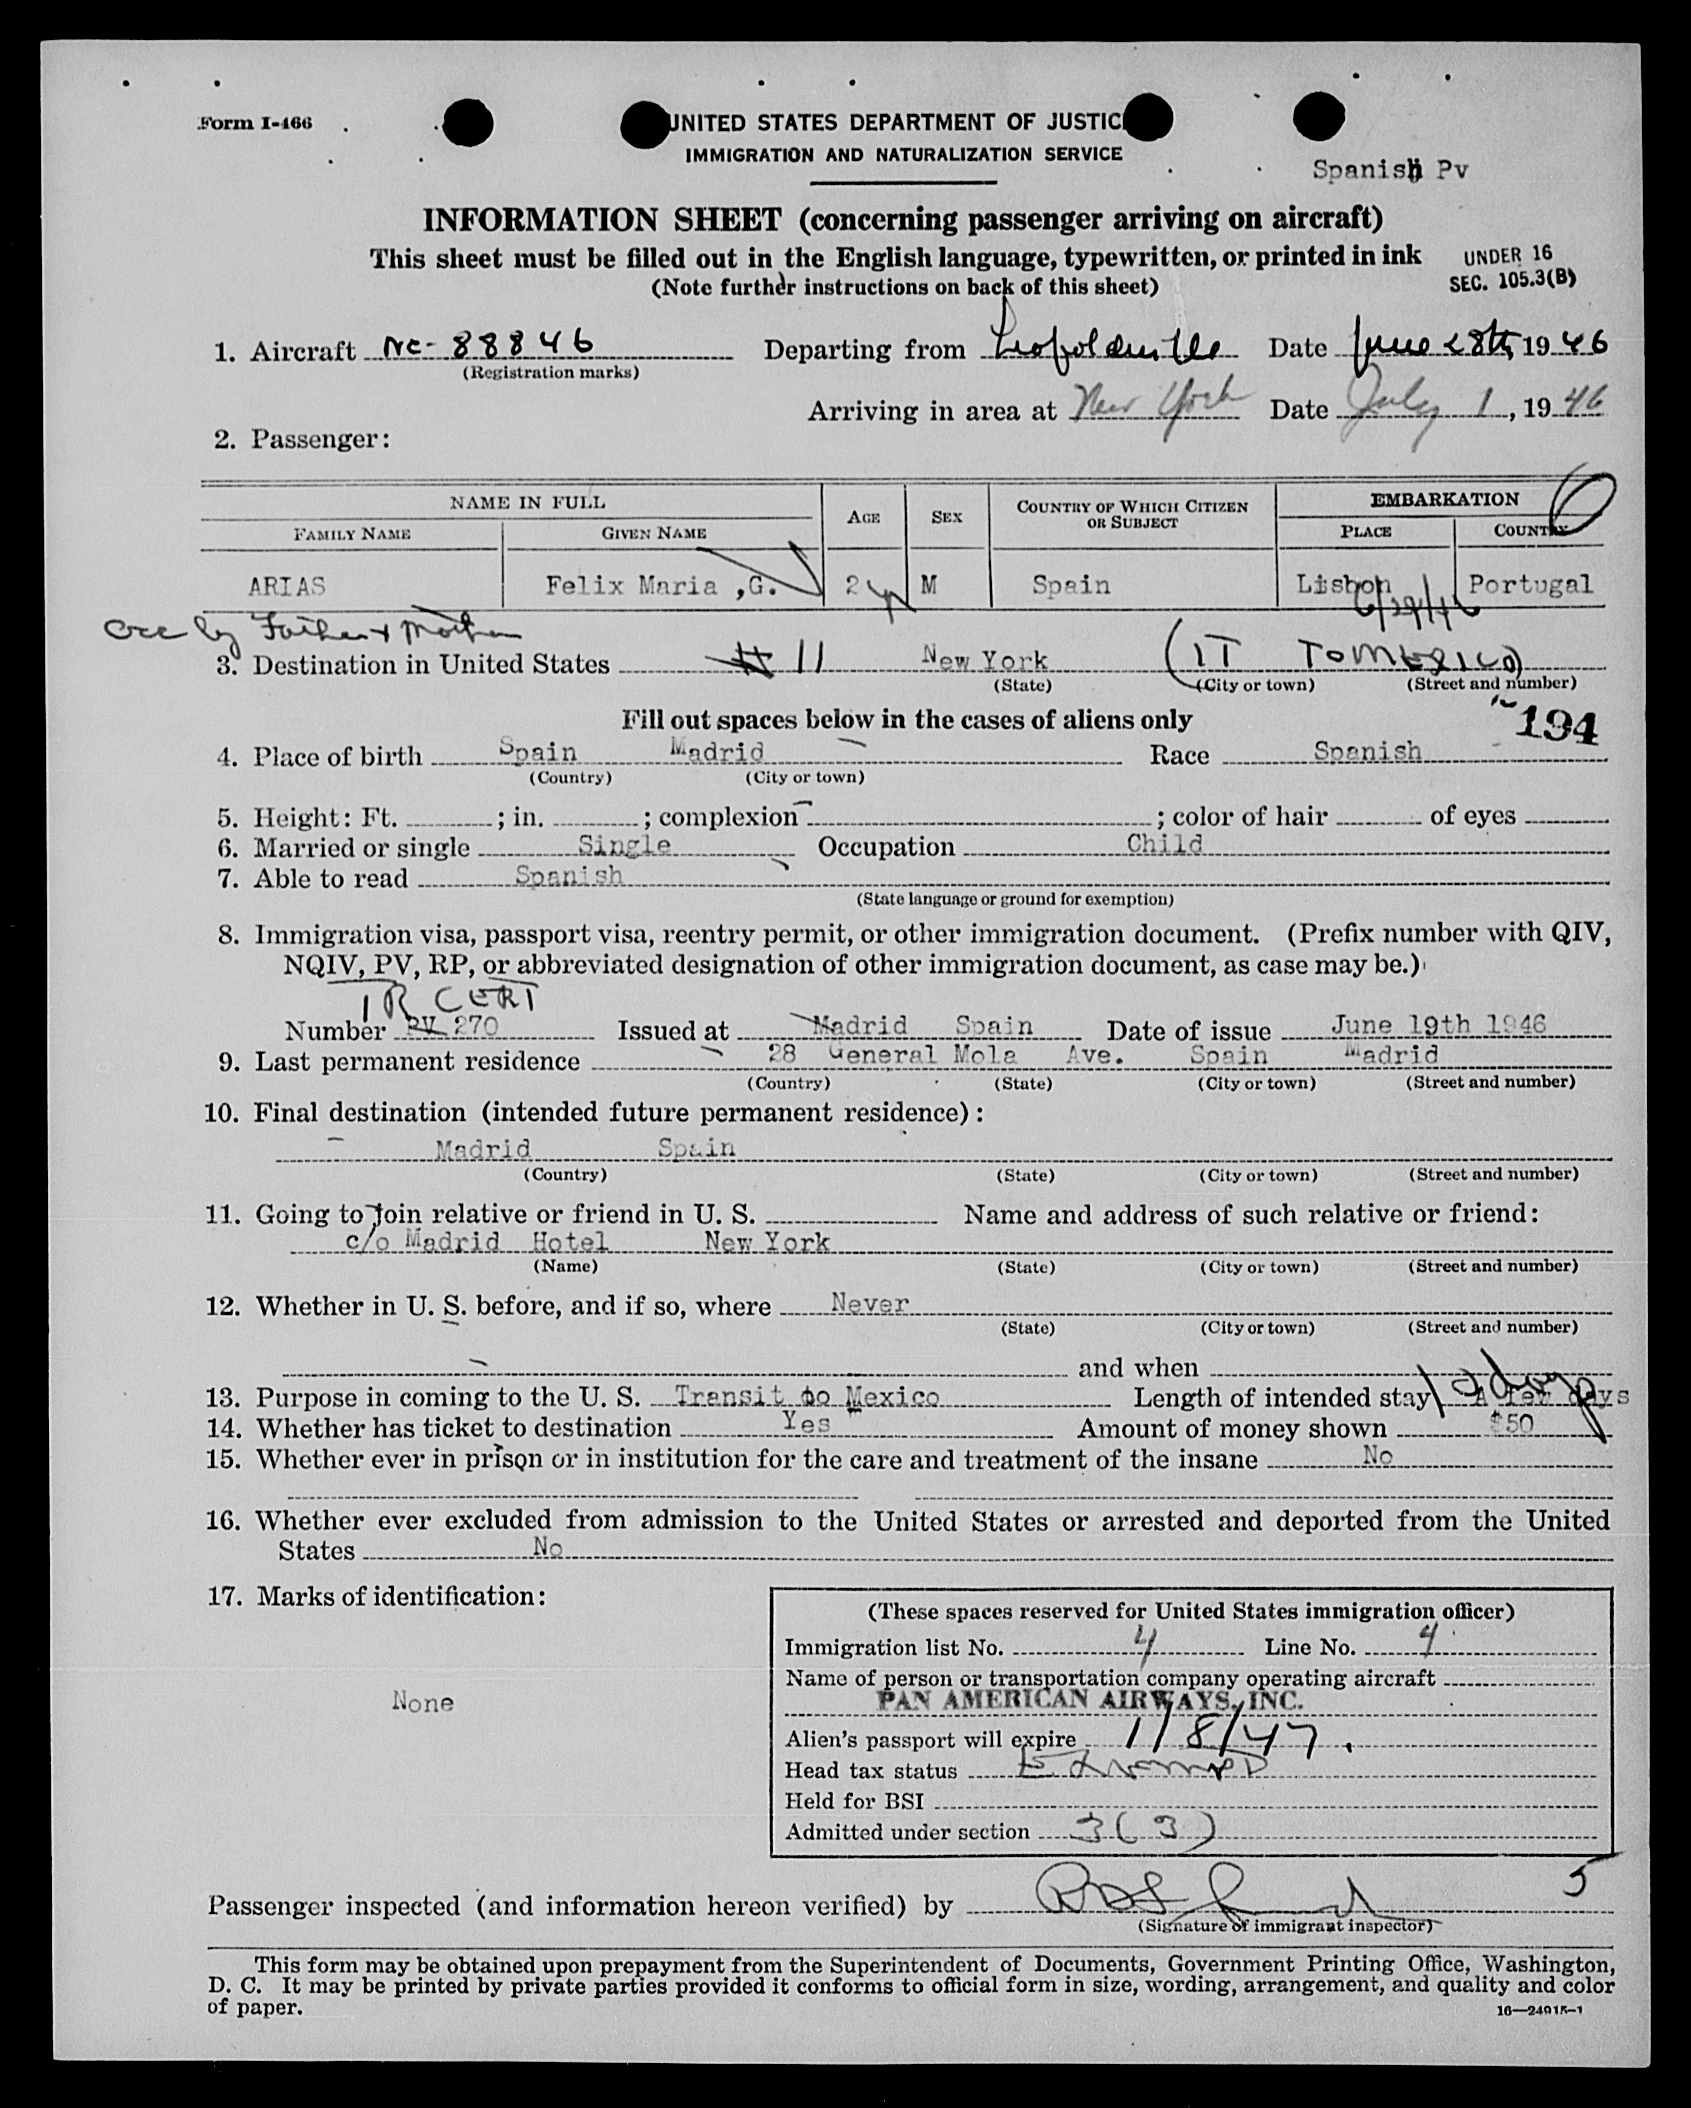 Form I-466
UNITED STATES DEPARTMENT OF JUSTIC
IMMIGRATION AND NATURALIZATION SERVICE
Spanish Pv
INFORMATION SHEET (concerning passenger arriving on aircraft)
This sheet must be filled out in the English language, typewritten, or printed in ink
UNDER 16
SEC. 105.3(B)
(Note further instructions on back of this sheet)
1. Aircraft NC-88846 Departing from Leopoldville Date June 28th, 1946
(Registration marks)
Arriving in area at New York Date July 1, 1946
2. Passenger:
NAME IN FULL AGE SEX COUNTRY OF WHICH CITIZEN OR SUBJECT EMBARKATION
FAMILY NAME GIVEN NAME PLACE COUNTRY
ARIAS Felix Maria ,G. 2 M Spain Lisbon Portugal
6/29/46
acc by Father & Mother
3. Destination in United States # 11 New York (IT TO MEXICO)
(State) (City or town) (Street and number)
Fill out spaces below in the cases of aliens only
194
4. Place of birth Spain Madrid Race Spanish
(Country) (City or town)
5. Height: Ft. ; in. ; complexion ; color of hair of eyes
6. Married or single Single Occupation Child
7. Able to read Spanish
(State language or ground for exemption)
8. Immigration visa, passport visa, reentry permit, or other immigration document. (Prefix number with QIV,
NQIV, PV, RP, or abbreviated designation of other immigration document, as case may be.)
TR CERT
Number PV 270 Issued at Madrid Spain Date of issue June 19th 1946
9. Last permanent residence 28 General Mola Ave. Spain Madrid
(Country) (State) (City or town) (Street and number)
10. Final destination (intended future permanent residence):
Madrid Spain
(Country) (State) (City or town) (Street and number)
11. Going to join relative or friend in U. S. Name and address of such relative or friend:
c/o Madrid Hotel New York
(Name) (State) (City or town) (Street and number)
12. Whether in U. S. before, and if so, where Never
(State) (City or town) (Street and number)
and when
13. Purpose in coming to the U. S. Transit to Mexico Length of intended stay A few days
14. Whether has ticket to destination Yes Amount of money shown $50
15. Whether ever in prison or in institution for the care and treatment of the insane No
16. Whether ever excluded from admission to the United States or arrested and deported from the United
States No
17. Marks of identification:
None
(These spaces reserved for United States immigration officer)
Immigration list No. 4 Line No. 4
Name of person or transportation company operating aircraft
PAN AMERICAN AIRWAYS, INC.
Alien's passport will expire 1/8/47.
Head tax status
Held for BSI
Admitted under section 3(3)
5
Passenger inspected (and information hereon verified) by
(Signature of immigrant inspector)
This form may be obtained upon prepayment from the Superintendent of Documents, Government Printing Office, Washington,
D. C. It may be printed by private parties provided it conforms to official form in size, wording, arrangement, and quality and color
of paper.
16—24915-1